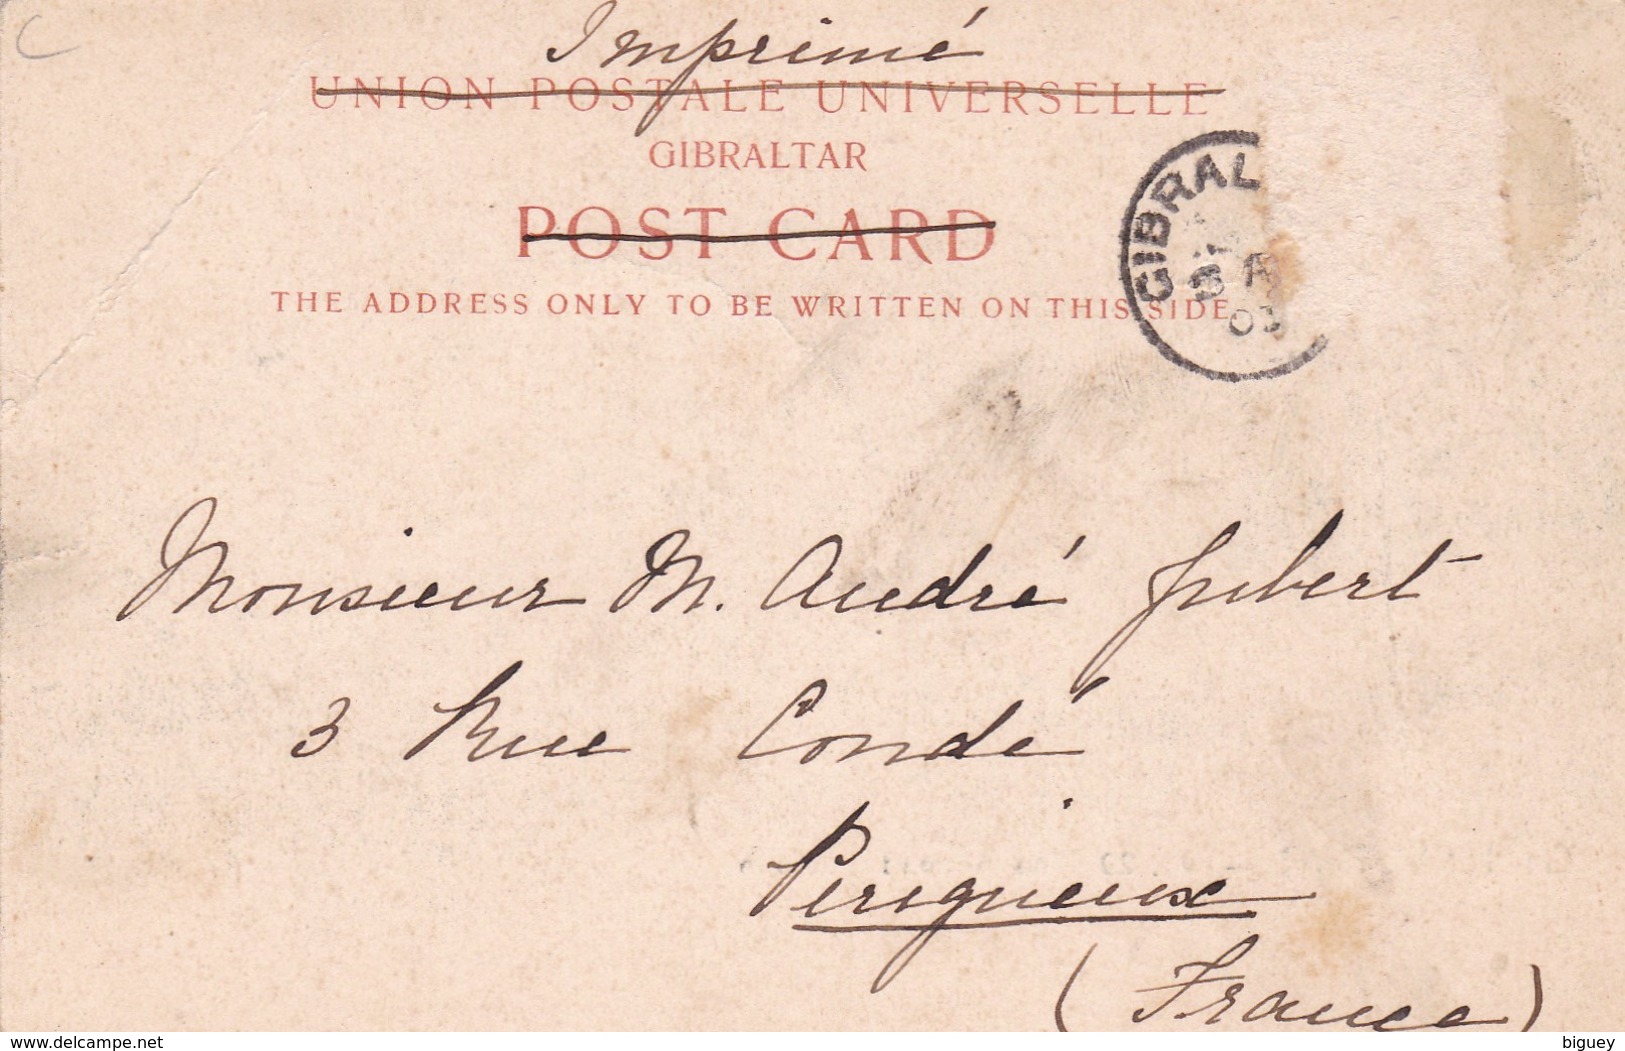 Imprimé
UNION POSTALE UNIVERSELLE
GIBRALTAR
POST CARD
THE ADDRESS ONLY TO BE WRITTEN ON THIS SIDE
GIBRAL
Monsieur M. André Jubert
3 Rue Condé
Perigueux
(France)
delcampe.net
biguey